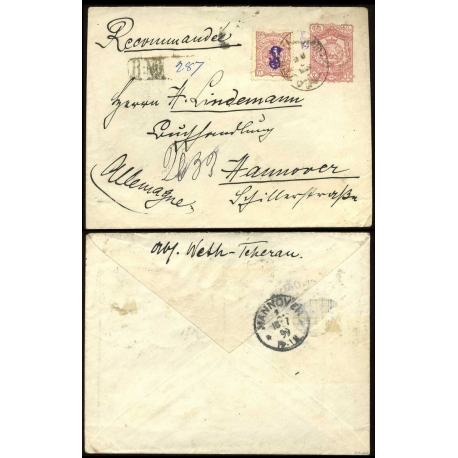 Recommandée
287
Herrn H. Lindemann
Buchhandlung
Hannover
Allemagne
Schillerstraße
Abs. Weth-Teheran.
HANNOVER
99